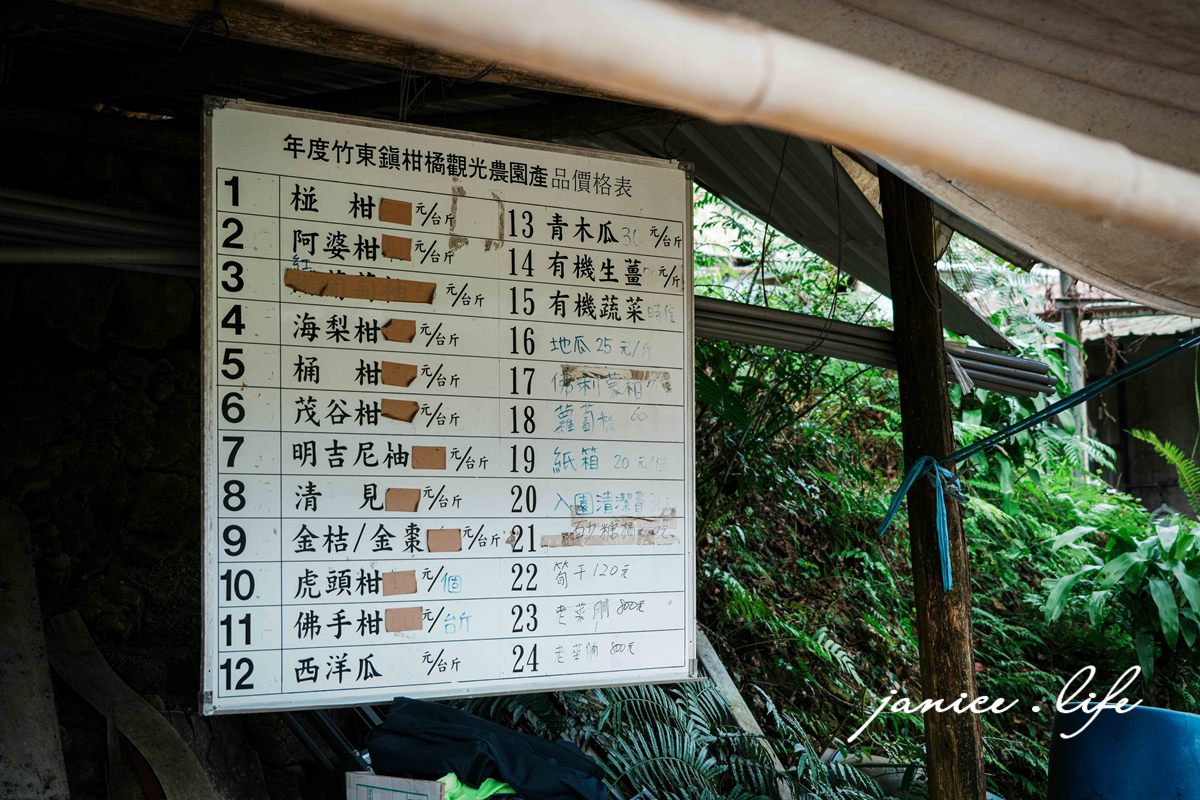 年度竹東鎮柑橘觀光農園產品價格表
1 椪柑 元/台斤
2 阿婆柑 元/台斤
3 元/台斤
4 海梨柑 元/台斤
5 桶柑 元/台斤
6 茂谷柑 元/台斤
7 明吉尼柚 元/台斤
8 清見 元/台斤
9 金桔/金棗 元/台斤
10 虎頭柑 元/個
11 佛手柑 元/台斤
12 西洋瓜 元/台斤
13 青木瓜 30 元/台斤
14 有機生薑 元/斤
15 有機蔬菜
16 地瓜 25 元/斤
17 佛利蒙柑
18 蘿蔔 60
19 紙箱 20 元/個
20 入園清潔費
21 砂糖橘 元
22 筍干 120元
23 老菜脯 800元
24 老菜脯 800元
janice.life